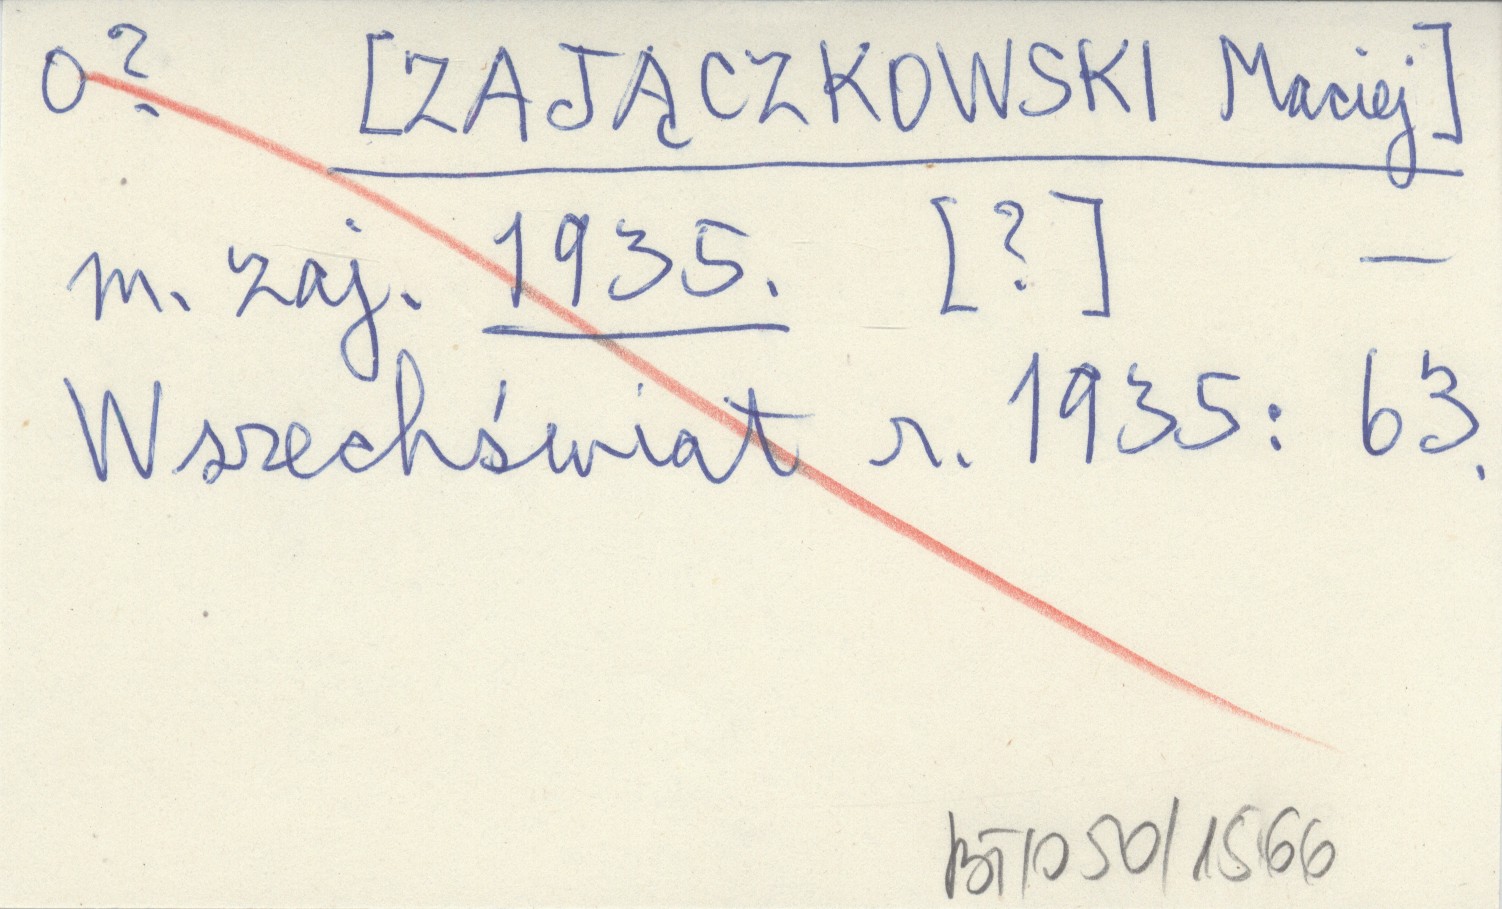 O? [ZAJĄCZKOWSKI Maciej]
m. zaj. 1935. [?] —
Wszechświat r. 1935: 63.
50/1566